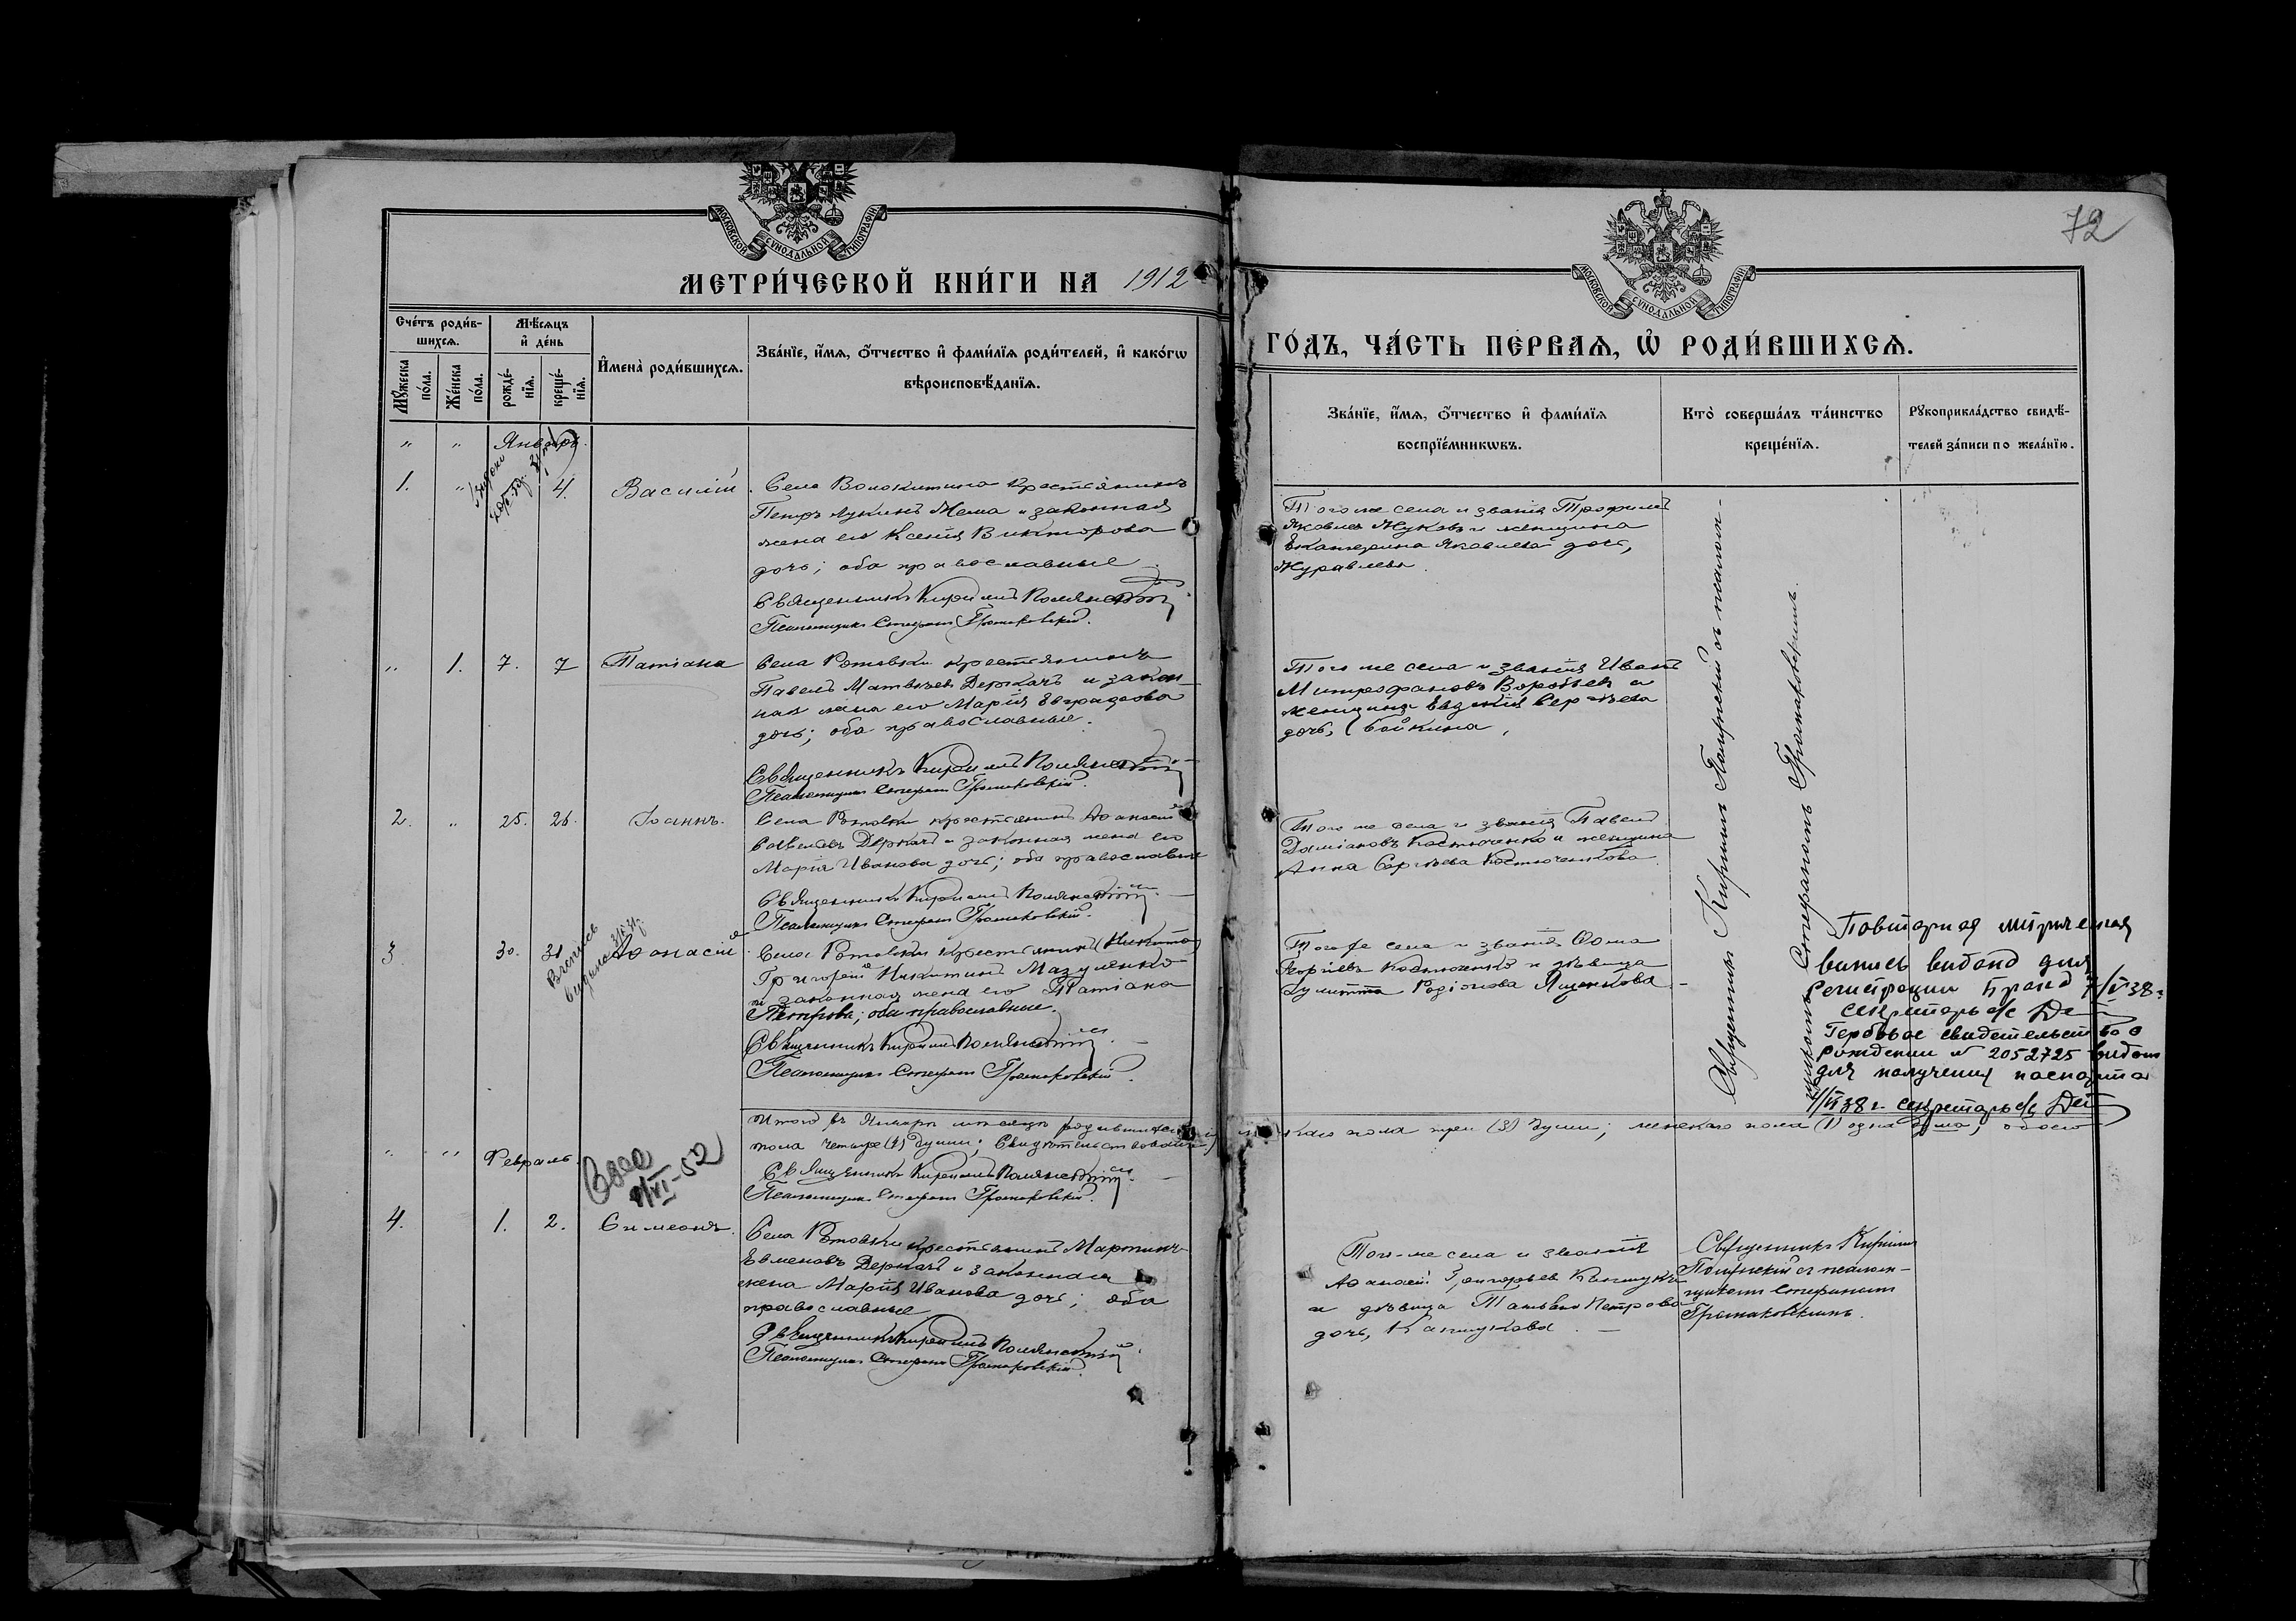 МОСКОВСКОЙ СѴНОДАЛЬНОЙ ТИПОГРАФІИ
МЕТРИ́ЧЕСКОЙ КНИ́ГИ НА 1912
Сче́тъ роди́в-
шихсѧ.
Мꙋ́жеска по́ла.
Же́нска по́ла.
Мѣ́сѧцъ
и҆ де́нь
рожде́-
нїѧ.
креще́-
нїѧ.
И҆мена̀ роди́вшихсѧ.
Зва́нїе, и҆́мѧ, ѻ҆́тчество и҆ фами́лїѧ роди́телей, и҆ како́гѡ
вѣроисповѣ́данїѧ.
„ „ Январь.
1. „ 4. Василій.
Села Волокитина крестьянинъ
Петръ Лукинъ и законная
жена его Ксенія Викторова
дочь; оба православные
Священникъ Кириллъ Полянскій
Псаломщикъ Стефанъ Громаковскій.
„ 1. 7. 7 Татіана
Села Ротовки крестьянинъ
Павелъ Матвѣевъ Деркачъ и закон-
ная жена его Марія Евграфова
дочь; оба православные.
Священникъ Кириллъ Полянскій
Псаломщикъ Стефанъ Громаковскій.
2. „ 25. 26. Іоаннъ.
Села Ротовки крестьянинъ Аѳанасій
Савеловъ Деркачъ и законная жена его
Марія Иванова дочь; оба православные
Священникъ Кириллъ Полянскій
Псаломщикъ Стефанъ Громаковскій.
3 30. 31 Аѳанасій
Выпись
выдана
Села Ротовки крестьянинъ (Никита)
Григорій Никитинъ Мазуленко
и законная жена его Татіана
Петрова; оба православные.
Священникъ Кириллъ Полянскій
Псаломщикъ Стефанъ Громаковскій.
Итого въ Январѣ мѣсяцѣ родившихся
пола четыре (4) души; Свидѣтельствовали:
„ „ Февраль.
8/VI-52
Священникъ Кириллъ Полянскій
Псаломщикъ Стефанъ Громаковскій.
4. 1. 2. Симеонъ.
Села Ротовки крестьянинъ Мартинъ
Евменовъ Деркачъ и законная
жена Марія Иванова дочь; оба
православные
Священникъ Кириллъ Полянскій
Псаломщикъ Стефанъ Громаковскій.
72
МОСКОВСКОЙ СѴНОДАЛЬНОЙ ТИПОГРАФІИ
ГО́ДЪ, ЧА́СТЬ ПЕ́РВАѦ, Ѡ҆ РОДИ́ВШИХСѦ.
Зва́нїе, и҆́мѧ, ѻ҆́тчество и҆ фами́лїѧ
воспрїе́мникѡвъ.
Кто̀ соверша́лъ та́инство
креще́нїѧ.
Рꙋкоприкла́дство свидѣ́-
телей за́писи по жела́нїю.
Того же села и званія Трофимъ
Яковлевъ Жуковъ и женщина
Екатерина Яковлева дочь,
Журавлева.
Того же села и званія Иванъ
Митрофановъ Воробьевъ и
женщина Евдокія Сергѣева
дочь, Бойкина,
Того же села и званія Павелъ
Даміановъ Костюченко и женщина
Анна Сергѣева Костюченкова.
Того же села и званія Ѳома
Георгіевъ Костюченко и дѣвица
Іулитта Родіонова Яценкова.
Священникъ Кириллъ Полянскій съ псалом-
щикомъ Стефаномъ Громаковскимъ.
Повторная метрическая
выпись выдана для
регистрации брака 7/V 38 г
секретарь с/с
Гербовое свидетельство о
рождении № 2052725 выдано
для получения паспорта
1/VI 38 г. секретарь с/с
скаго пола три (3) души; женскаго пола (1) одна душа; обоего
Того-же села и званія
Аѳанасій Григорьевъ
и дѣвица Татьяна Петрова
дочь,
Священникъ Кириллъ
Полянскій съ псалом-
щикомъ Стефаномъ
Громаковскимъ.